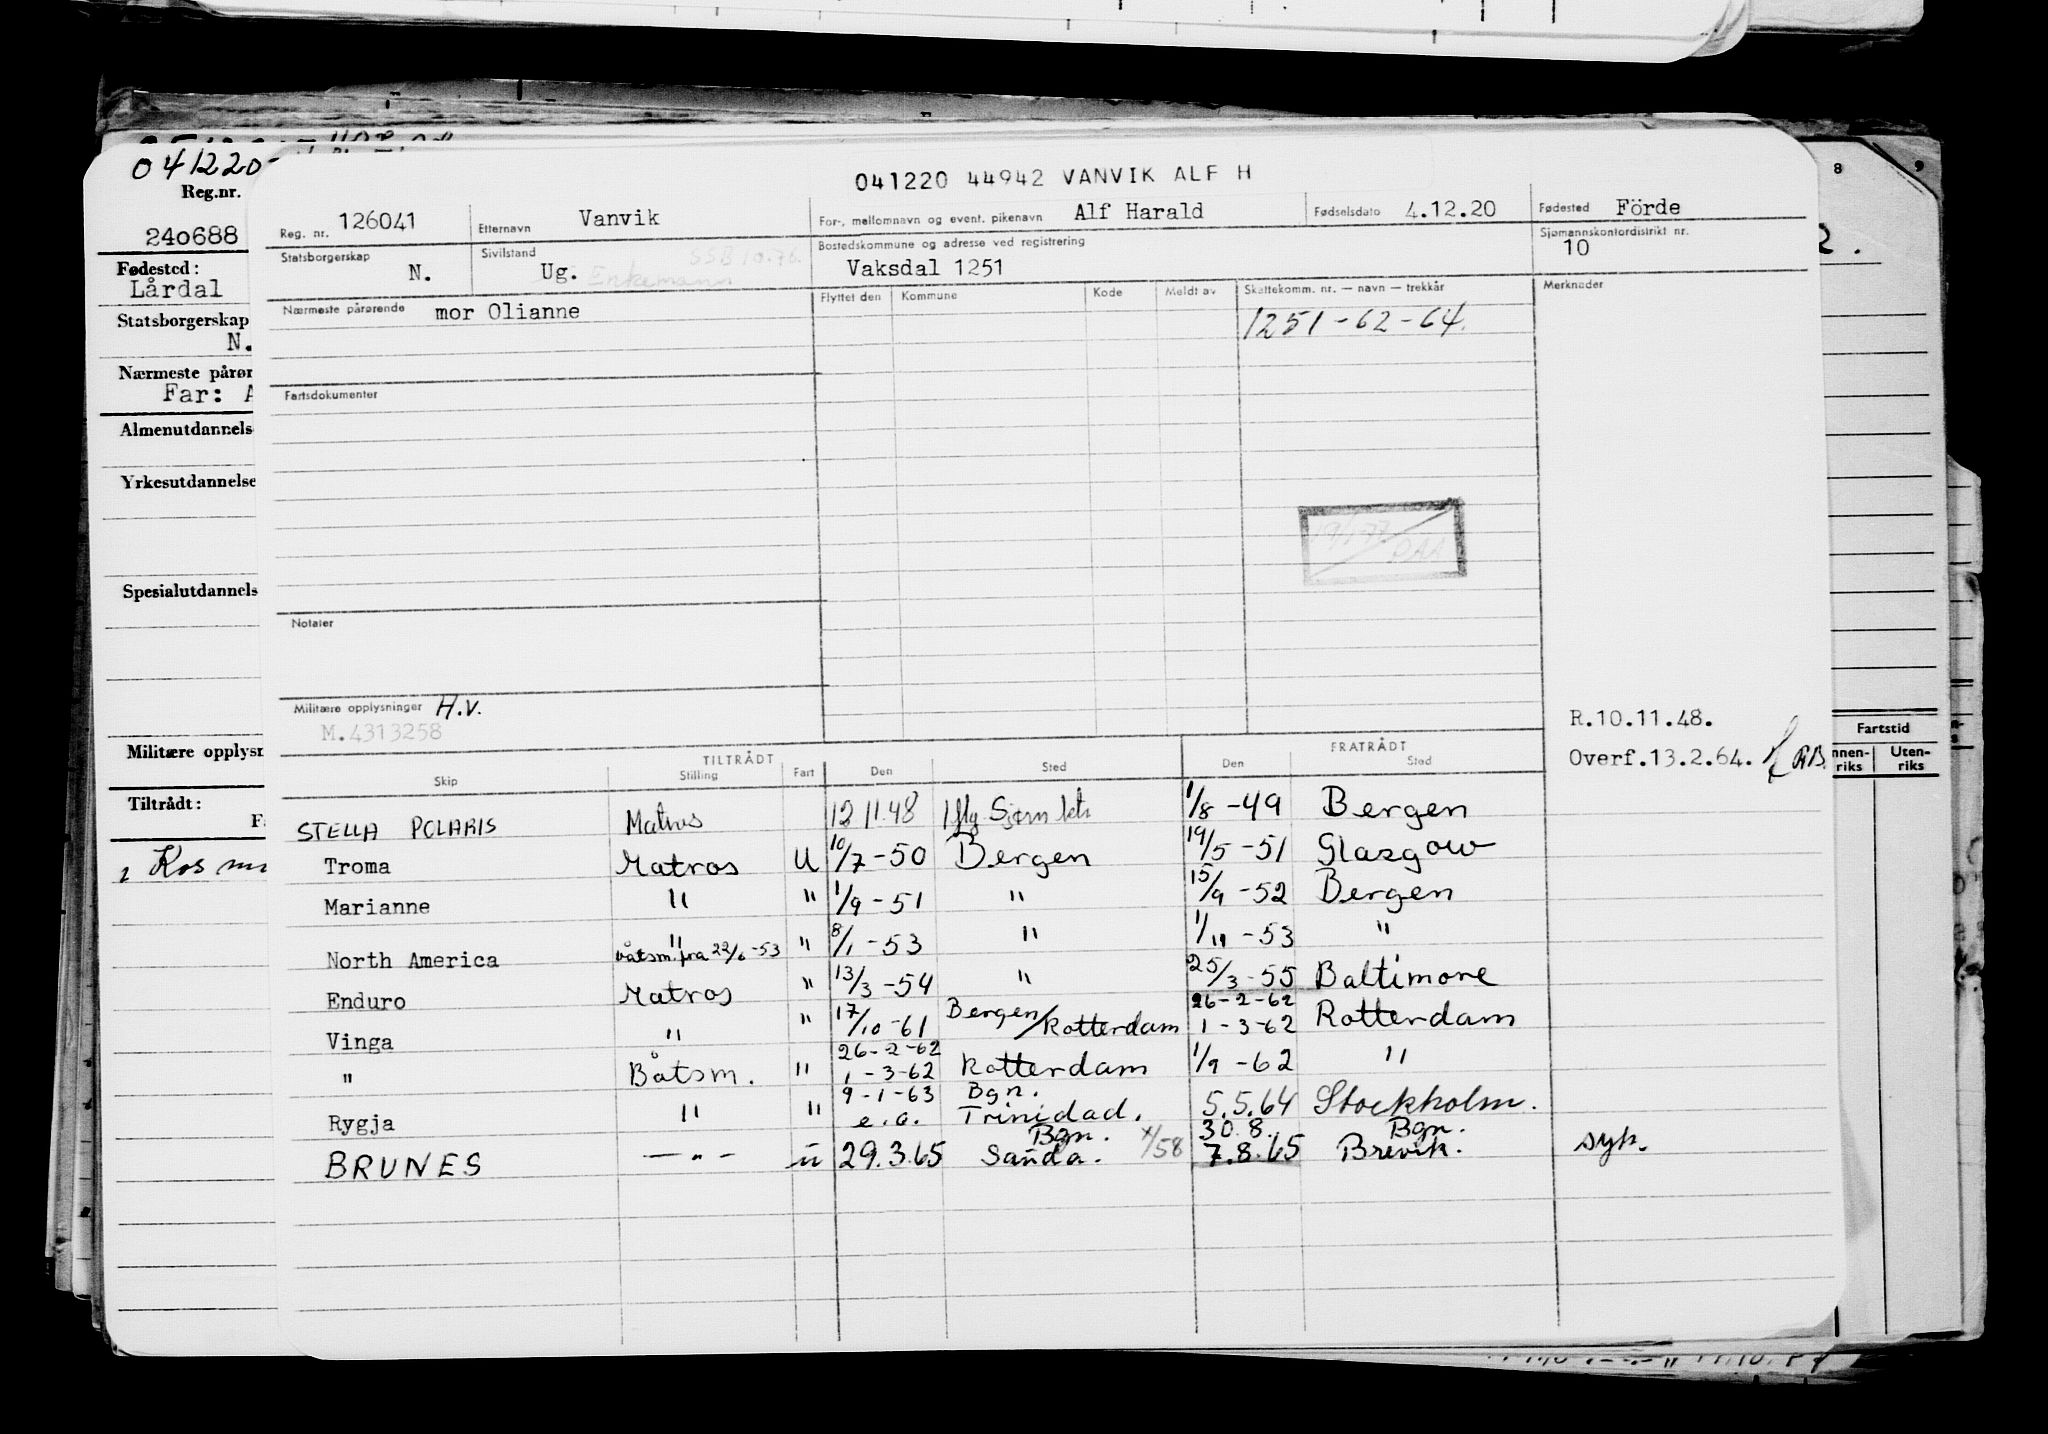 041220
Reg.nr.
240688
Fødested:
Lårdal
Statsborgerskap
N.
Nærmeste pårør
Far: A
Almenutdannels
Yrkesutdannelse
Spesialutdannels
Militære opplysn
Tiltrådt:
Kos
041220 44942 VANVIK ALF H
Reg. nr. 126041 Etternavn Vanvik For-, mellomnavn og event. pikenavn Alf Harald Fødselsdato 4.12.20 Fødested Förde
Statsborgerskap N. Sivilstand Ug. Enkemann SSB 10.76 Bostedskommune og adresse ved registrering Vaksdal 1251 Sjømannskontordistrikt nr. 10
Nærmeste pårørende mor Olianne Flyttet den Kommune Kode Meldt av Skattekomm. nr. — navn — trekkår Merknader
1251-62-64.
Fartsdokumenter
Notater
Militære opplysninger H.V.
M.4313258
R.10.11.48.
Overf.13.2.64.
TILTRÅDT FRATRÅDT
Skip Stilling Fart Den Sted Den Sted
STELLA POLARIS Matros 12 11.48 1/8 -49 Bergen
Troma Matros U 10/7 -50 Bergen 19/5 -51 Glasgow
Marianne " " 1/9 -51 " 15/9 -52 Bergen
North America " båtsm. fra 22/6 -53 " 8/1 -53 " 1/11 -53 "
Enduro Matros " 13/3 -54 " 25/3 -55 Baltimore
Vinga " " 17/10 -61 Bergen/Rotterdam 26-2-62 1-3-62 Rotterdam
" Båtsm. " 26-2-62 1-3-62 Rotterdam 1/9 -62 "
Rygja " " 9-1-63 e.o. Bgn. Trinidad. 5.5.64 Stockholm.
BRUNES — " — " 29.3.65 Bgn. Sanda. 30.8. 7.8.65 Bgn. Brevik. syk.
8 9
Fartstid
nnen-riks Uten-riks